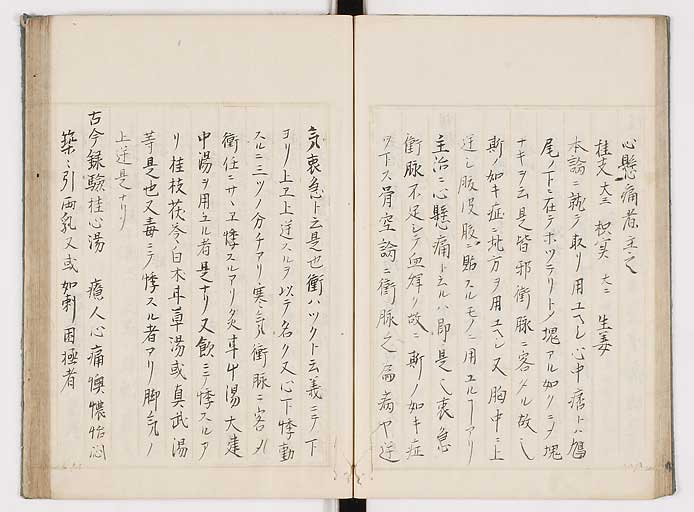 心懸痛者主之
桂支 大三 枳実 大二 生姜
本論ニ就テ取リ用ユヘシ心中痞トハ鳩
尾ノ下ニ在テホツテリトノ塊アル如クニテ塊
ナキヲ云是皆邪衝脉ニ客タル故也
斯ノ如キ症ニ此方ヲ用ユヘシ又胸中ニ上
逆シ腹皮腹ニ貼スルモノニ用ユルヿアリ
主治ニ心懸痛ト云ルハ即是也衷急
衝脉不足シテ血燥リ故ニ斯ノ如キ症
ヲ下ス骨空論ニ衝脉之為病ヤ逆
気衷急ト云是也衝ハツクト云義ニテ下
ヨリ上エ上逆スルヲ以テ名ク又心下悸動
スルニ三ツノ分チアリ寒気衝脉ニ客メ
衝任ニサヽエ悸スルアリ炙草湯大建
中湯ヲ用ユル者是ナリ又飲ニテ悸スルア
リ桂枝茯苓白木耳草湯或真武湯
等是也又毒ニテ悸スル者アリ脚気ノ
上逆是ナリ
古今録験桂心湯 療人心痛懊憹悁悶
築々引両乳又或如刺困極者